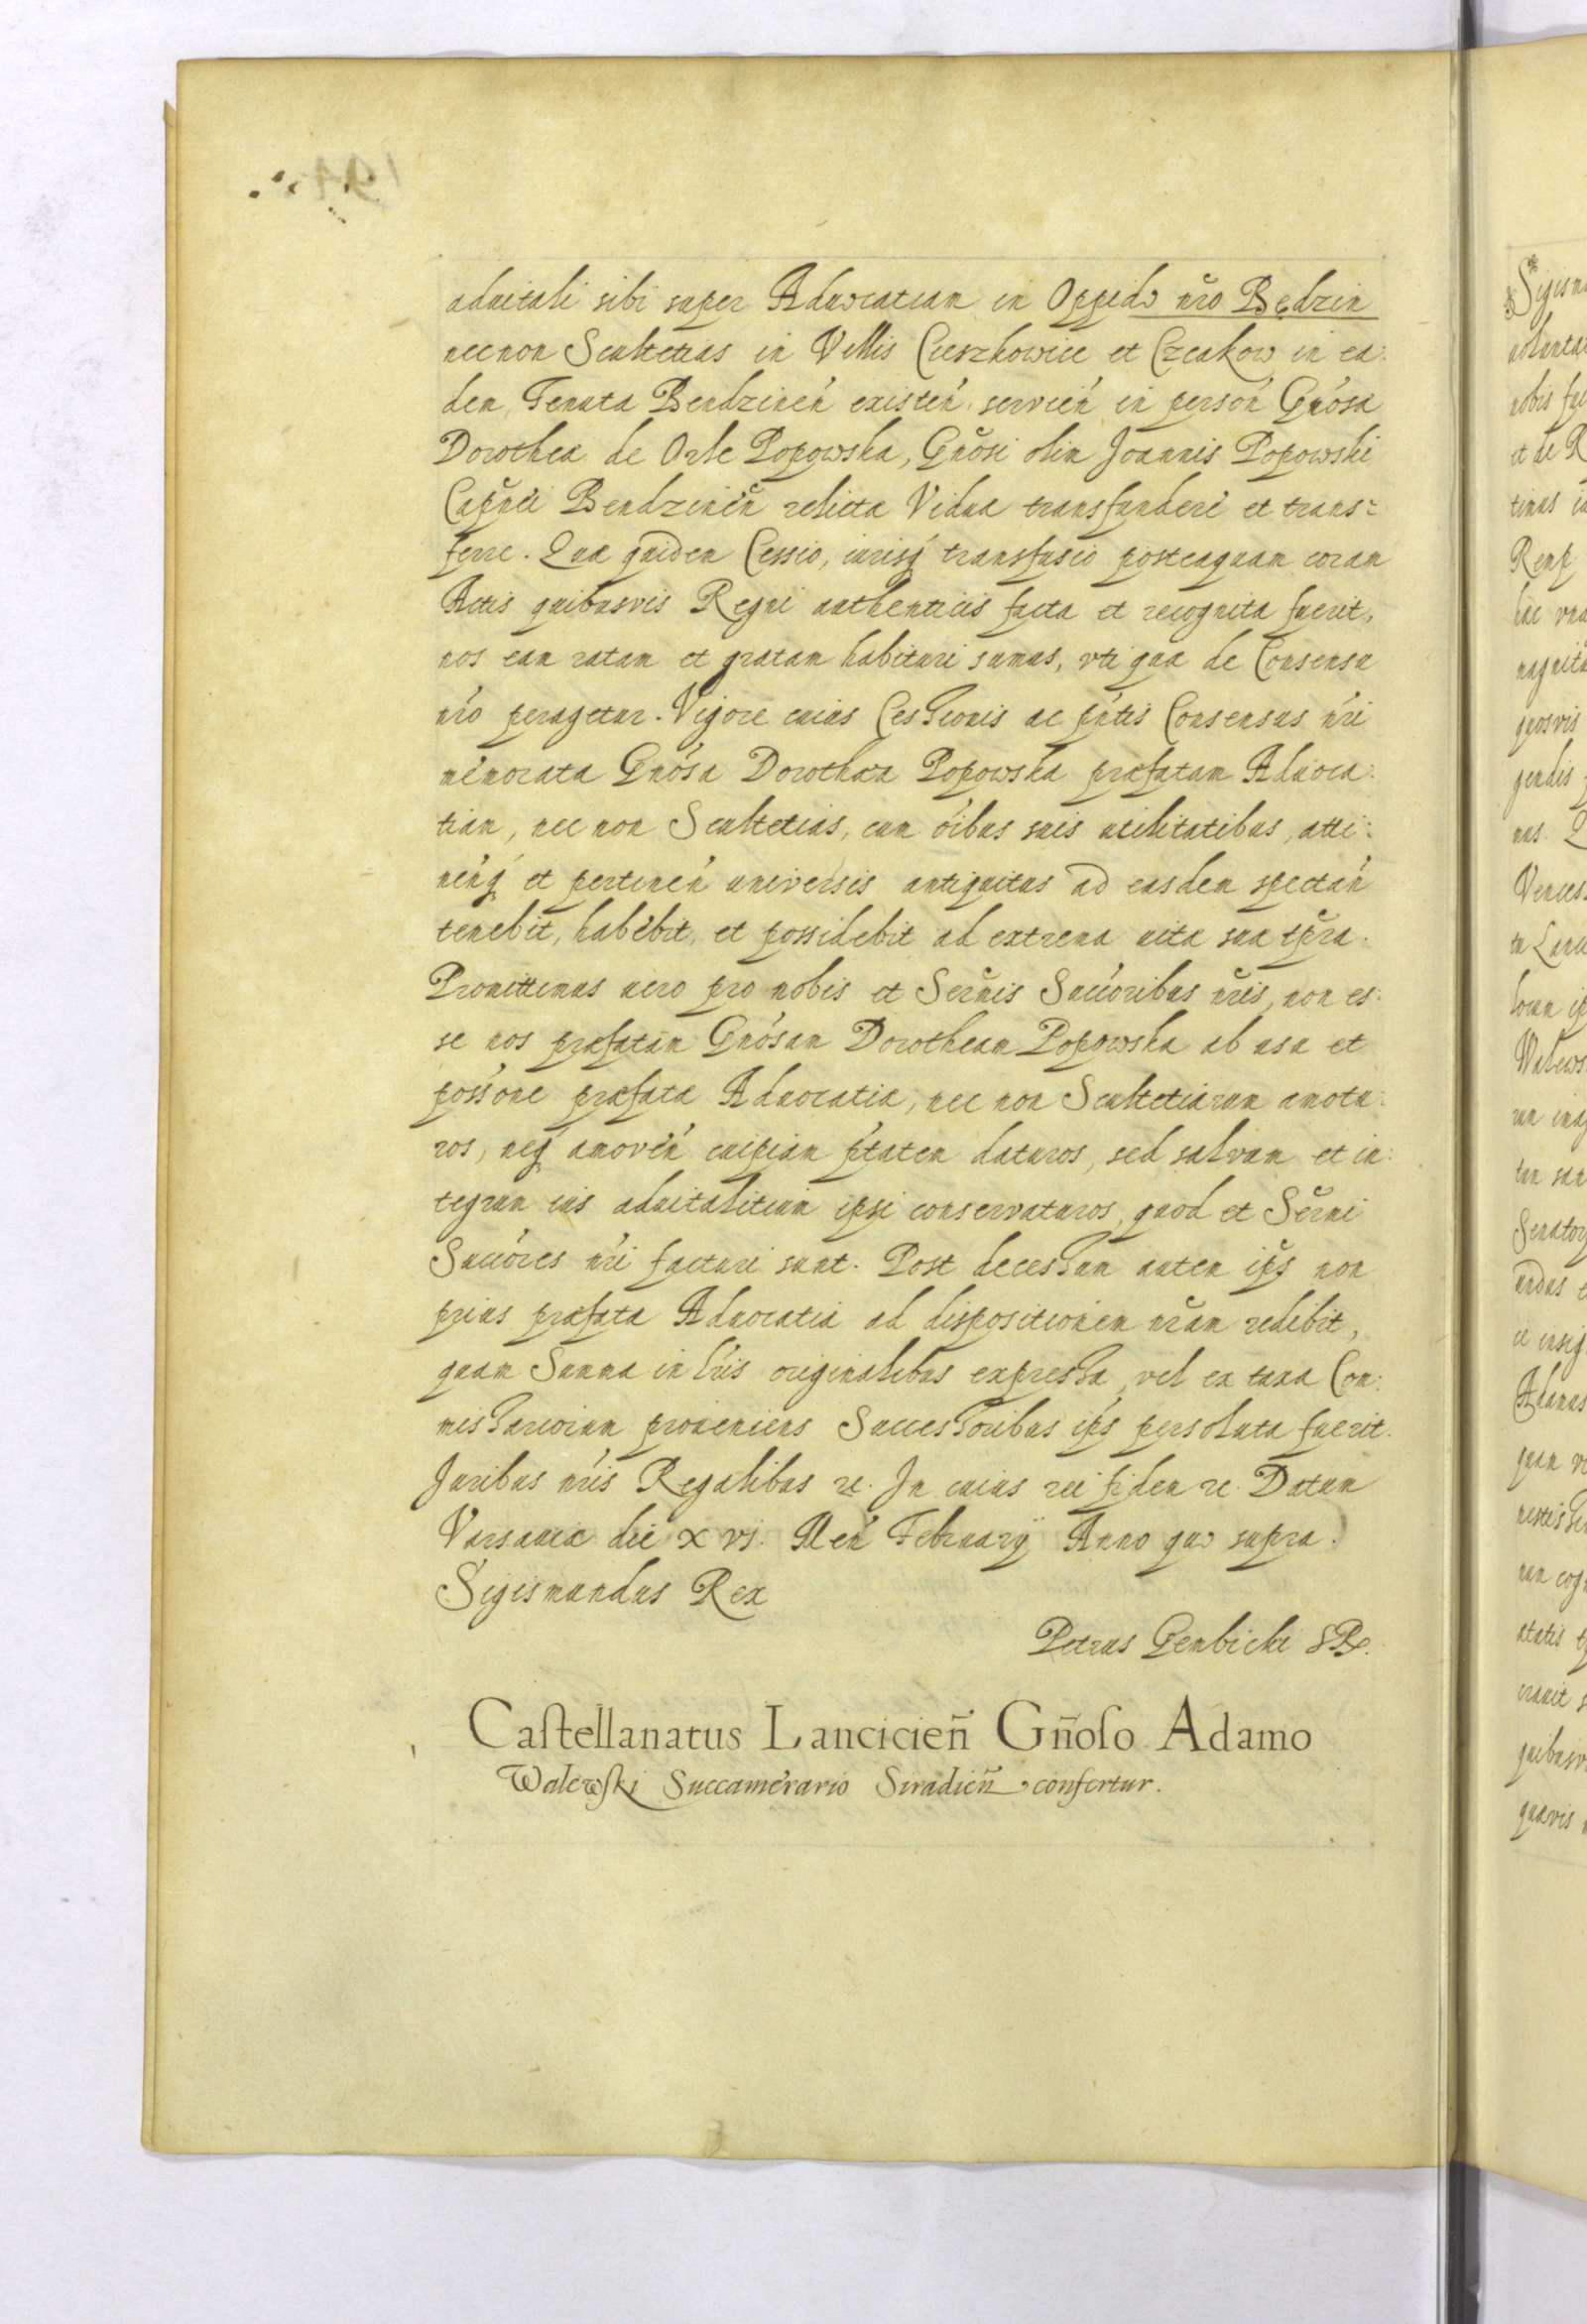 aduitali sibi super Aduocatiam in Oppido nr̃o Będzin
necnon Scultetias in Villis Cieszkowice et Czeakow in ea:
dem Tenuta Bendzineń existeń servień in persoń Gnósæ
Dorotheæ de Orle Popowska, Gnõsi olim Joannis Popowski
Capñei Bendzineñ relictæ Viduæ transfundere et trans:
ferre. Quæ quidem Cessio, iurisq́ transfusio posteaquam coram
Actis quibusvis Regni authenticis facta et recognita fuerit,
nos eam ratam et gratam habituri sumus, vti quæ de Consensu
nŕo peragetur. Vigore cuius Cessionis ac pńtis Consensus nŕi
memorata Gnósa Dorothæa Popowska præfatam Aduoca:
tiam, nec non Scultetias, cum óibus suis utilitatibus, atti:
neńq́ et pertineń universis antiquitus ad easdem spectań
tenebit, habebit, et possidebit ad extrema uitæ suæ tp̃ra.
Promittimus uero pro nobis et Serñis Succóribus nr̃is, non es:
se nos præfatam Gnósam Dorotheam Popowska ab usu et
posśone præfatæ Aduocatiæ, nec non Scultetiarum amotu:
ros, neq́ amoveń cuipiam p̃tatem daturos, sed salvum et in:
tegrum ius aduitalitium ipsi conservaturos, quod et Serñi
Succóres nŕi facturi sunt. Post decessum autem ip̃s non
prius præfata Aduocatia ad dispositionem nr̃am redibit,
quam Summa in lŕis originalibus expressa, vel ex taxa Com:
missariorum proueniens Successoribus ip̃s persoluta fuerit.
Juribus nŕis Regalibus rc. In cuius rei fidem rc. Datum
Varsauiæ die xvj. Meń Februarij Anno quo supra.
Sigismundus Rex
Petrus Gembicki SR.
Caſtellanatus Lancicieñ Gñoſo Adamo
Walewſki Succamérario Siradieñ confertur.